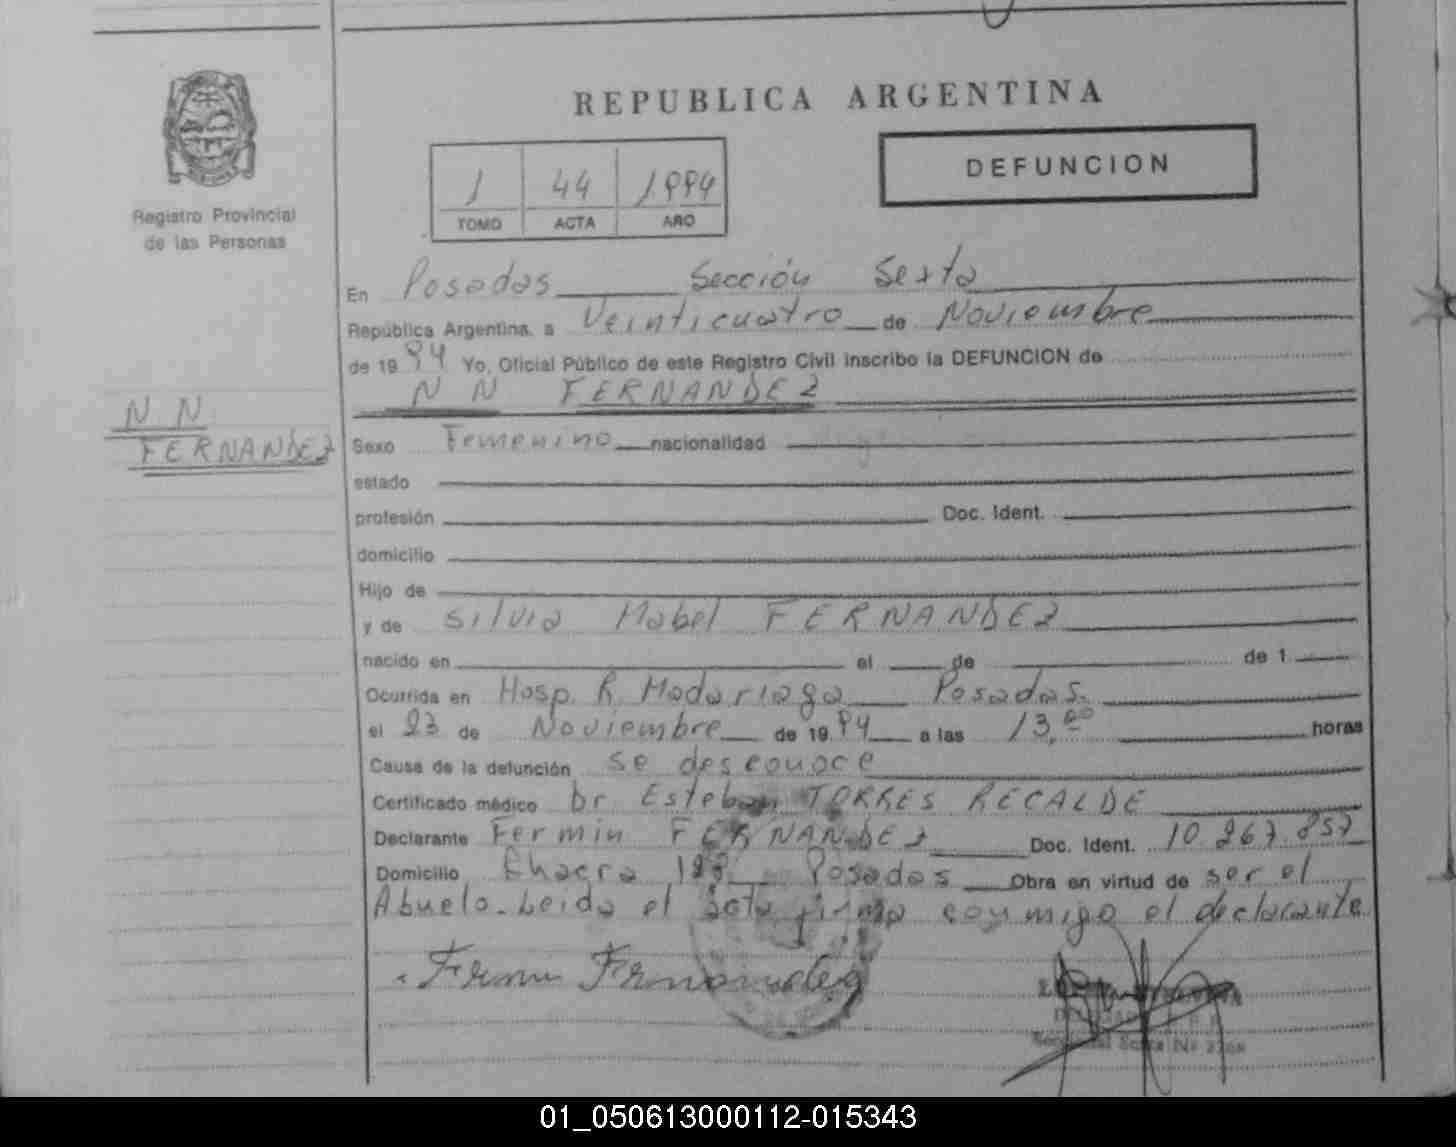 REPUBLICA ARGENTINA
DEFUNCION
1 44 1994
TOMO ACTA AÑO
Registro Provincial
de las Personas
En Posadas Sección Sexta
República Argentina, a Veinticuatro de Noviembre
de 19 94 Yo, Oficial Público de este Registro Civil inscribo la DEFUNCION de
N N FERNANDEZ
N N
FERNANDEZ
Sexo Femenino nacionalidad
estado
profesión Doc. Ident.
domicilio
Hijo de
y de Silvia Mabel FERNANDEZ
nacido en el de de 1
Ocurrida en Hosp. R. Madariaga Posadas.
el 23 de Noviembre de 19 94 a las 13,00 horas
Causa de la defunción se desconoce
Certificado médico Dr. Esteban TORRES RECALDE
Declarante Fermin FERNANDEZ Doc. Ident. 10.267.857
Domicilio Chacra Posadas Obra en virtud de ser el
Abuelo. Leida el acta firma conmigo el declarante
Fermin Fernandez
01_050613000112-015343